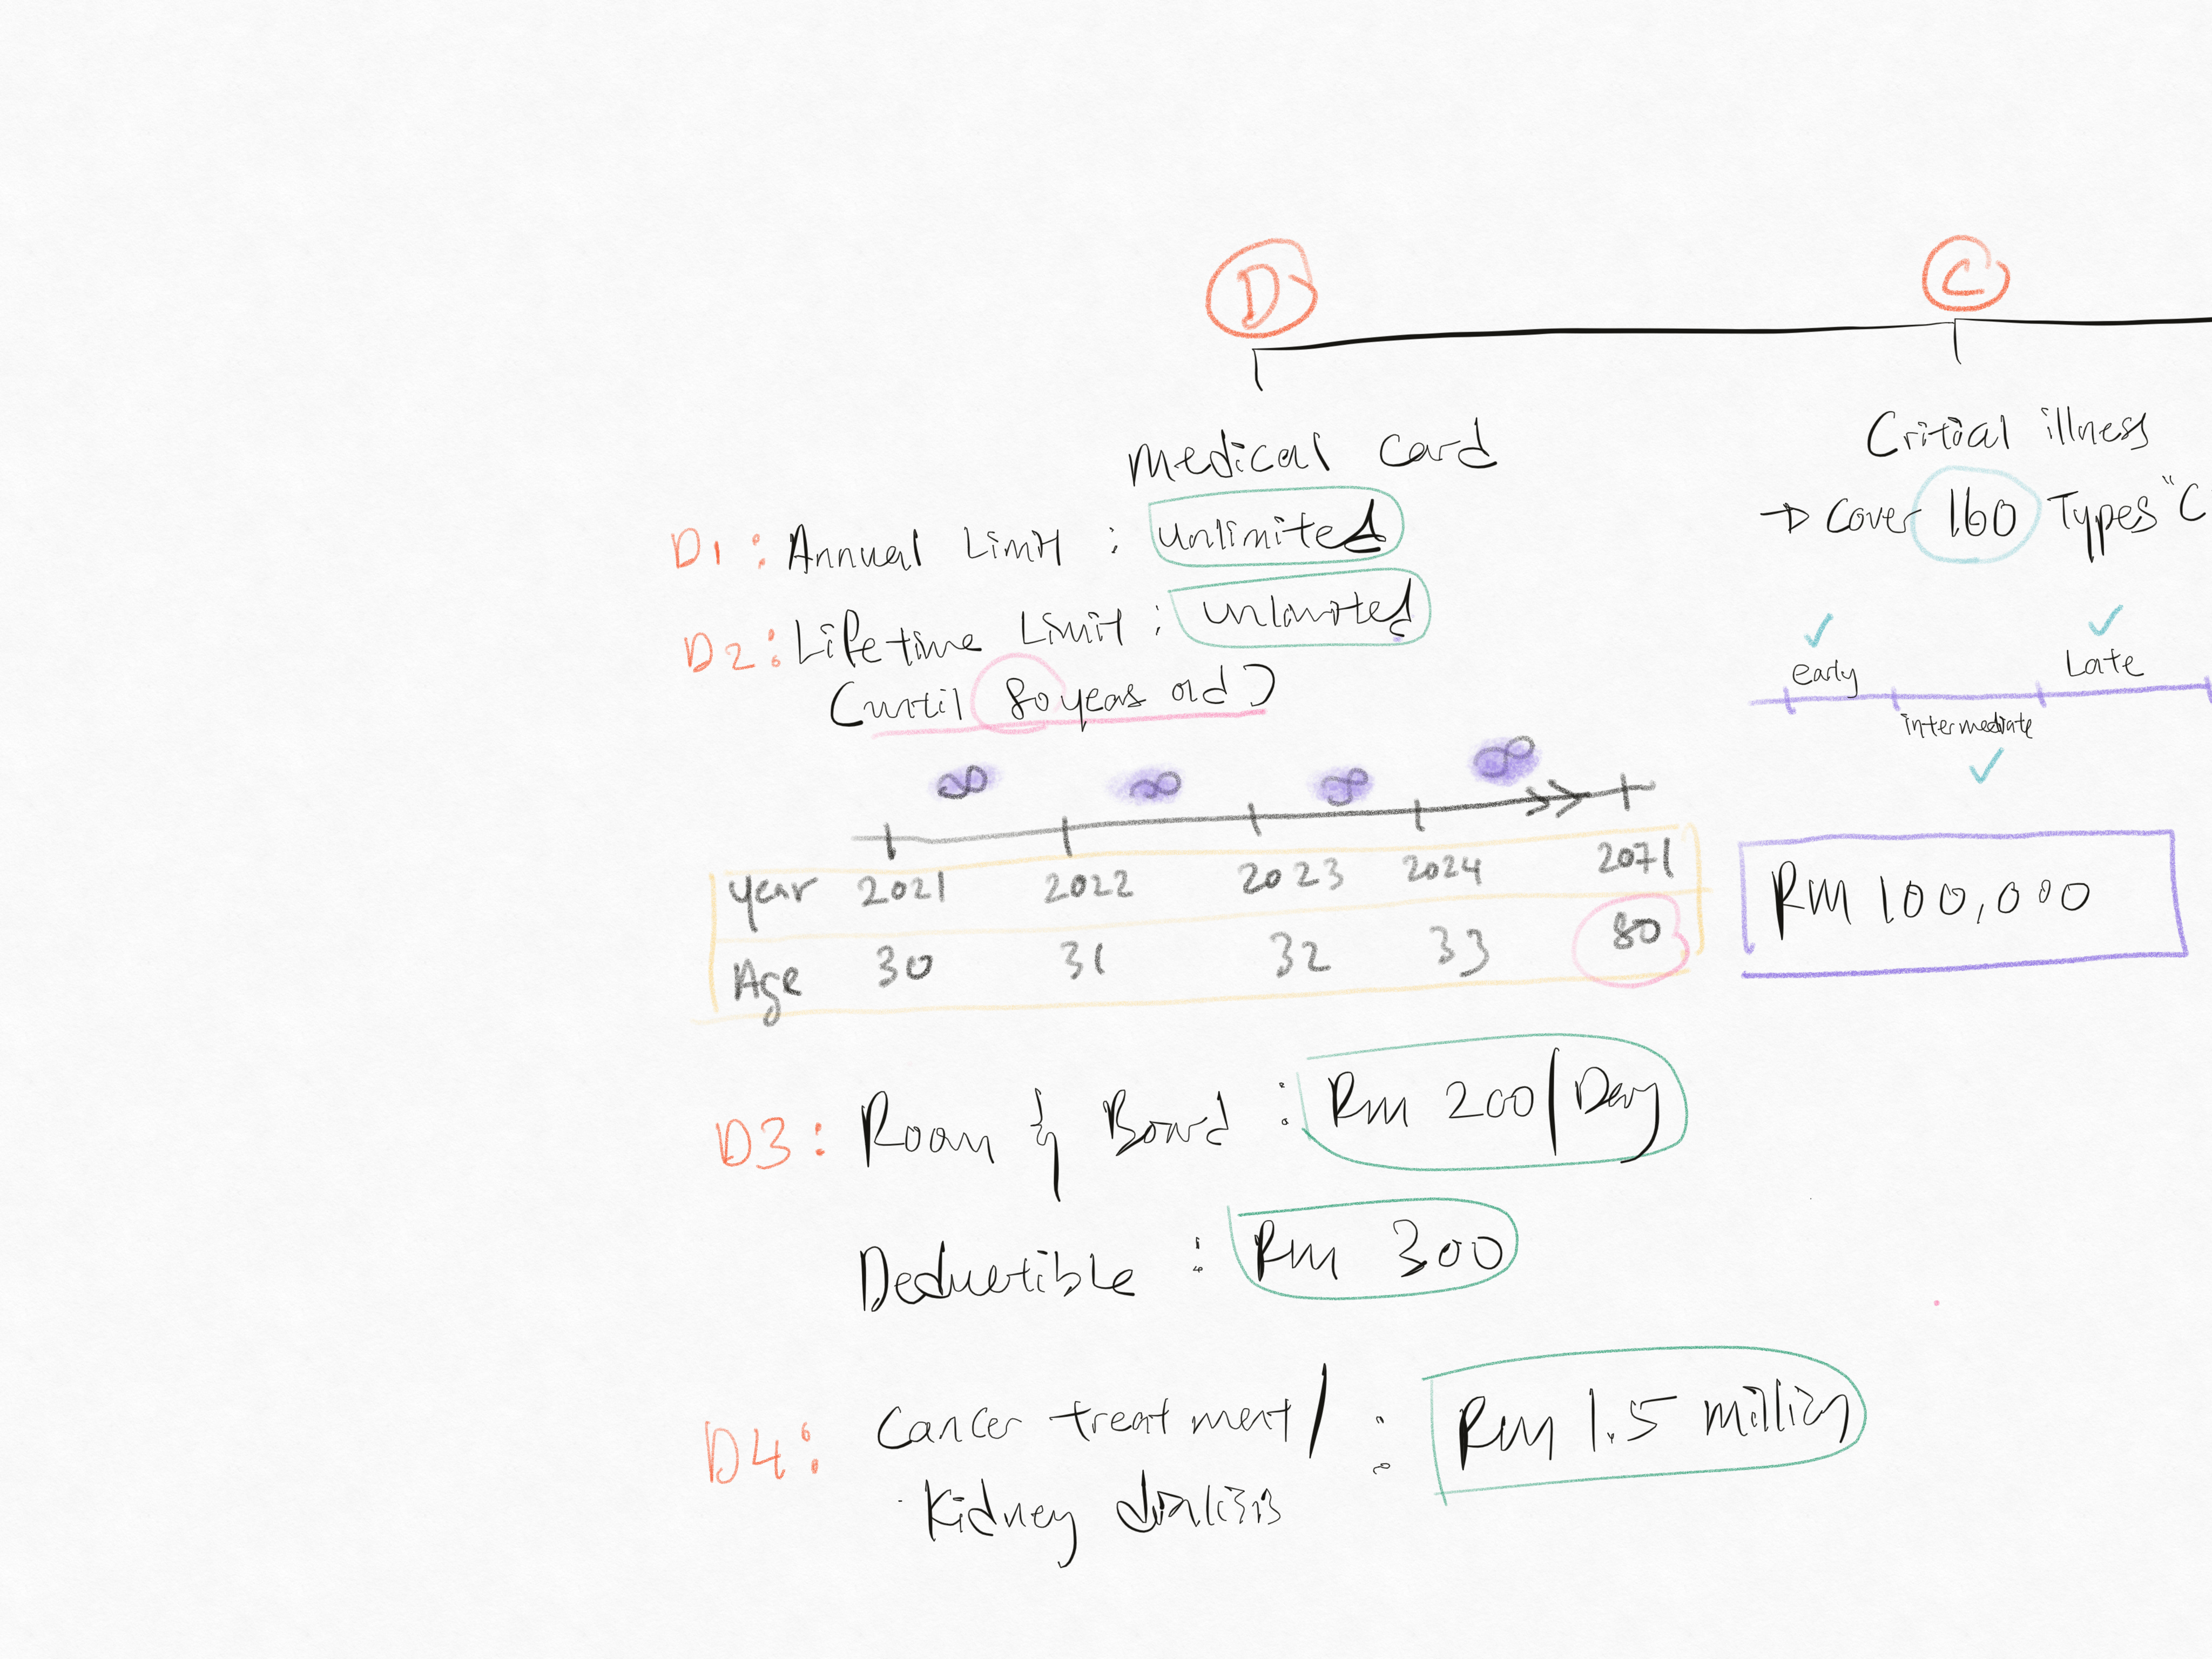 D
medical card
D1: Annual Limit : unlimited
D2: Lifetime Limit : unlimited
(until 80 years old)
∞ ∞ ∞ ∞
year 2021 2022 2023 2024 2071
Age 30 31 32 33 80
D3: Room & Board : Rm 200/Day
Deductible : Rm 300
D4: Cancer treatment/ : Rm 1.5 million
Kidney dialisis
C
Critical illness
→ Cover 160 Types "C
early Late
intermediate
RM 100,000